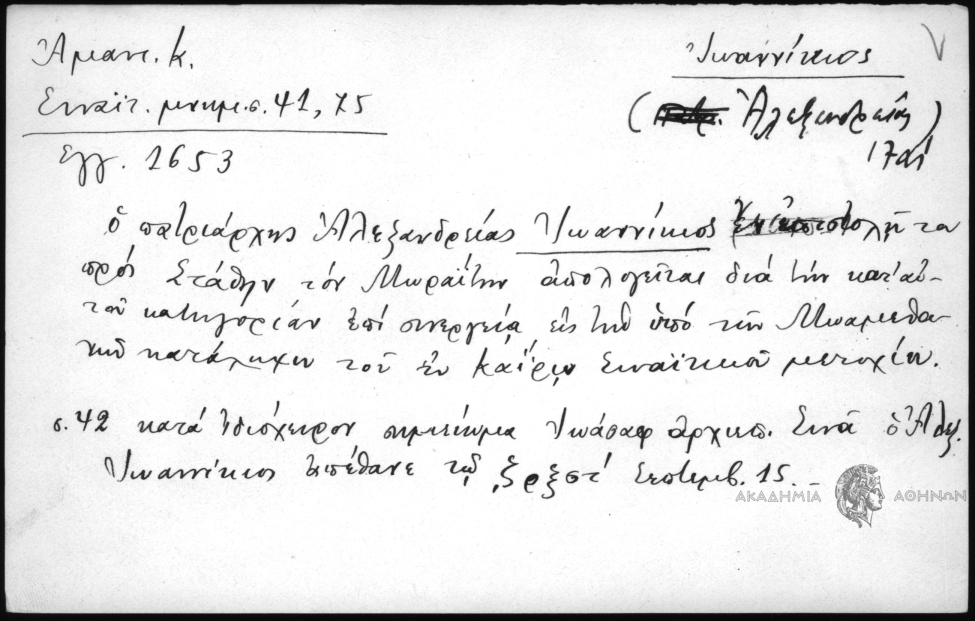 Ἀμαντ. Κ.
Σιναϊτ. μνημ. σ. 41, 75
Ἔγγ. 1653
Ἰωαννίκιος
( Ἀλεξανδρείας)
17ος
ὁ πατριάρχης Ἀλεξανδρείας Ἰωαννίκιος
πρός Στάθην τόν Μωραΐτην ἀπολογεῖται διά τήν κατ' αὐ-
τοῦ κατηγορίαν ἐπί συνεργείᾳ εἰς τήν ὑπό τῶν Μωαμεθα-
νῶν κατάληψιν τοῦ ἐν Καΐρῳ Σιναϊτικοῦ μετοχίου.
σ. 42 κατά ἰδιόχειρον σημείωμα Ἰωάσαφ ἀρχιεπ. Σινᾶ ὁ Ἀλεξ.
Ἰωαννίκιος ἀπέθανε τῷ ͵ζρξστ΄ Σεπτεμβ. 15.
ΑΚΑΔΗΜΙΑ ΑΘΗΝΩΝ